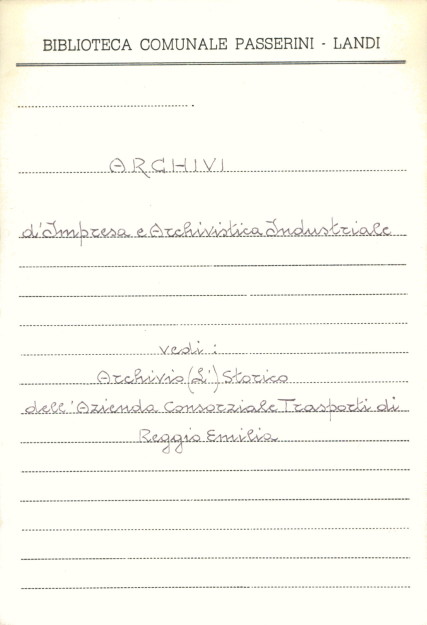 BIBLIOTECA COMUNALE PASSERINI - LANDI
ARCHIVI
d'Impresa e Archivistica Industriale
vedi :
Archivio (L') Storico
dell'Azienda Consorziale Trasporti di
Reggio Emilia